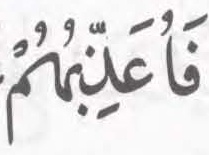 فَاُعَذِّبُهُمْ